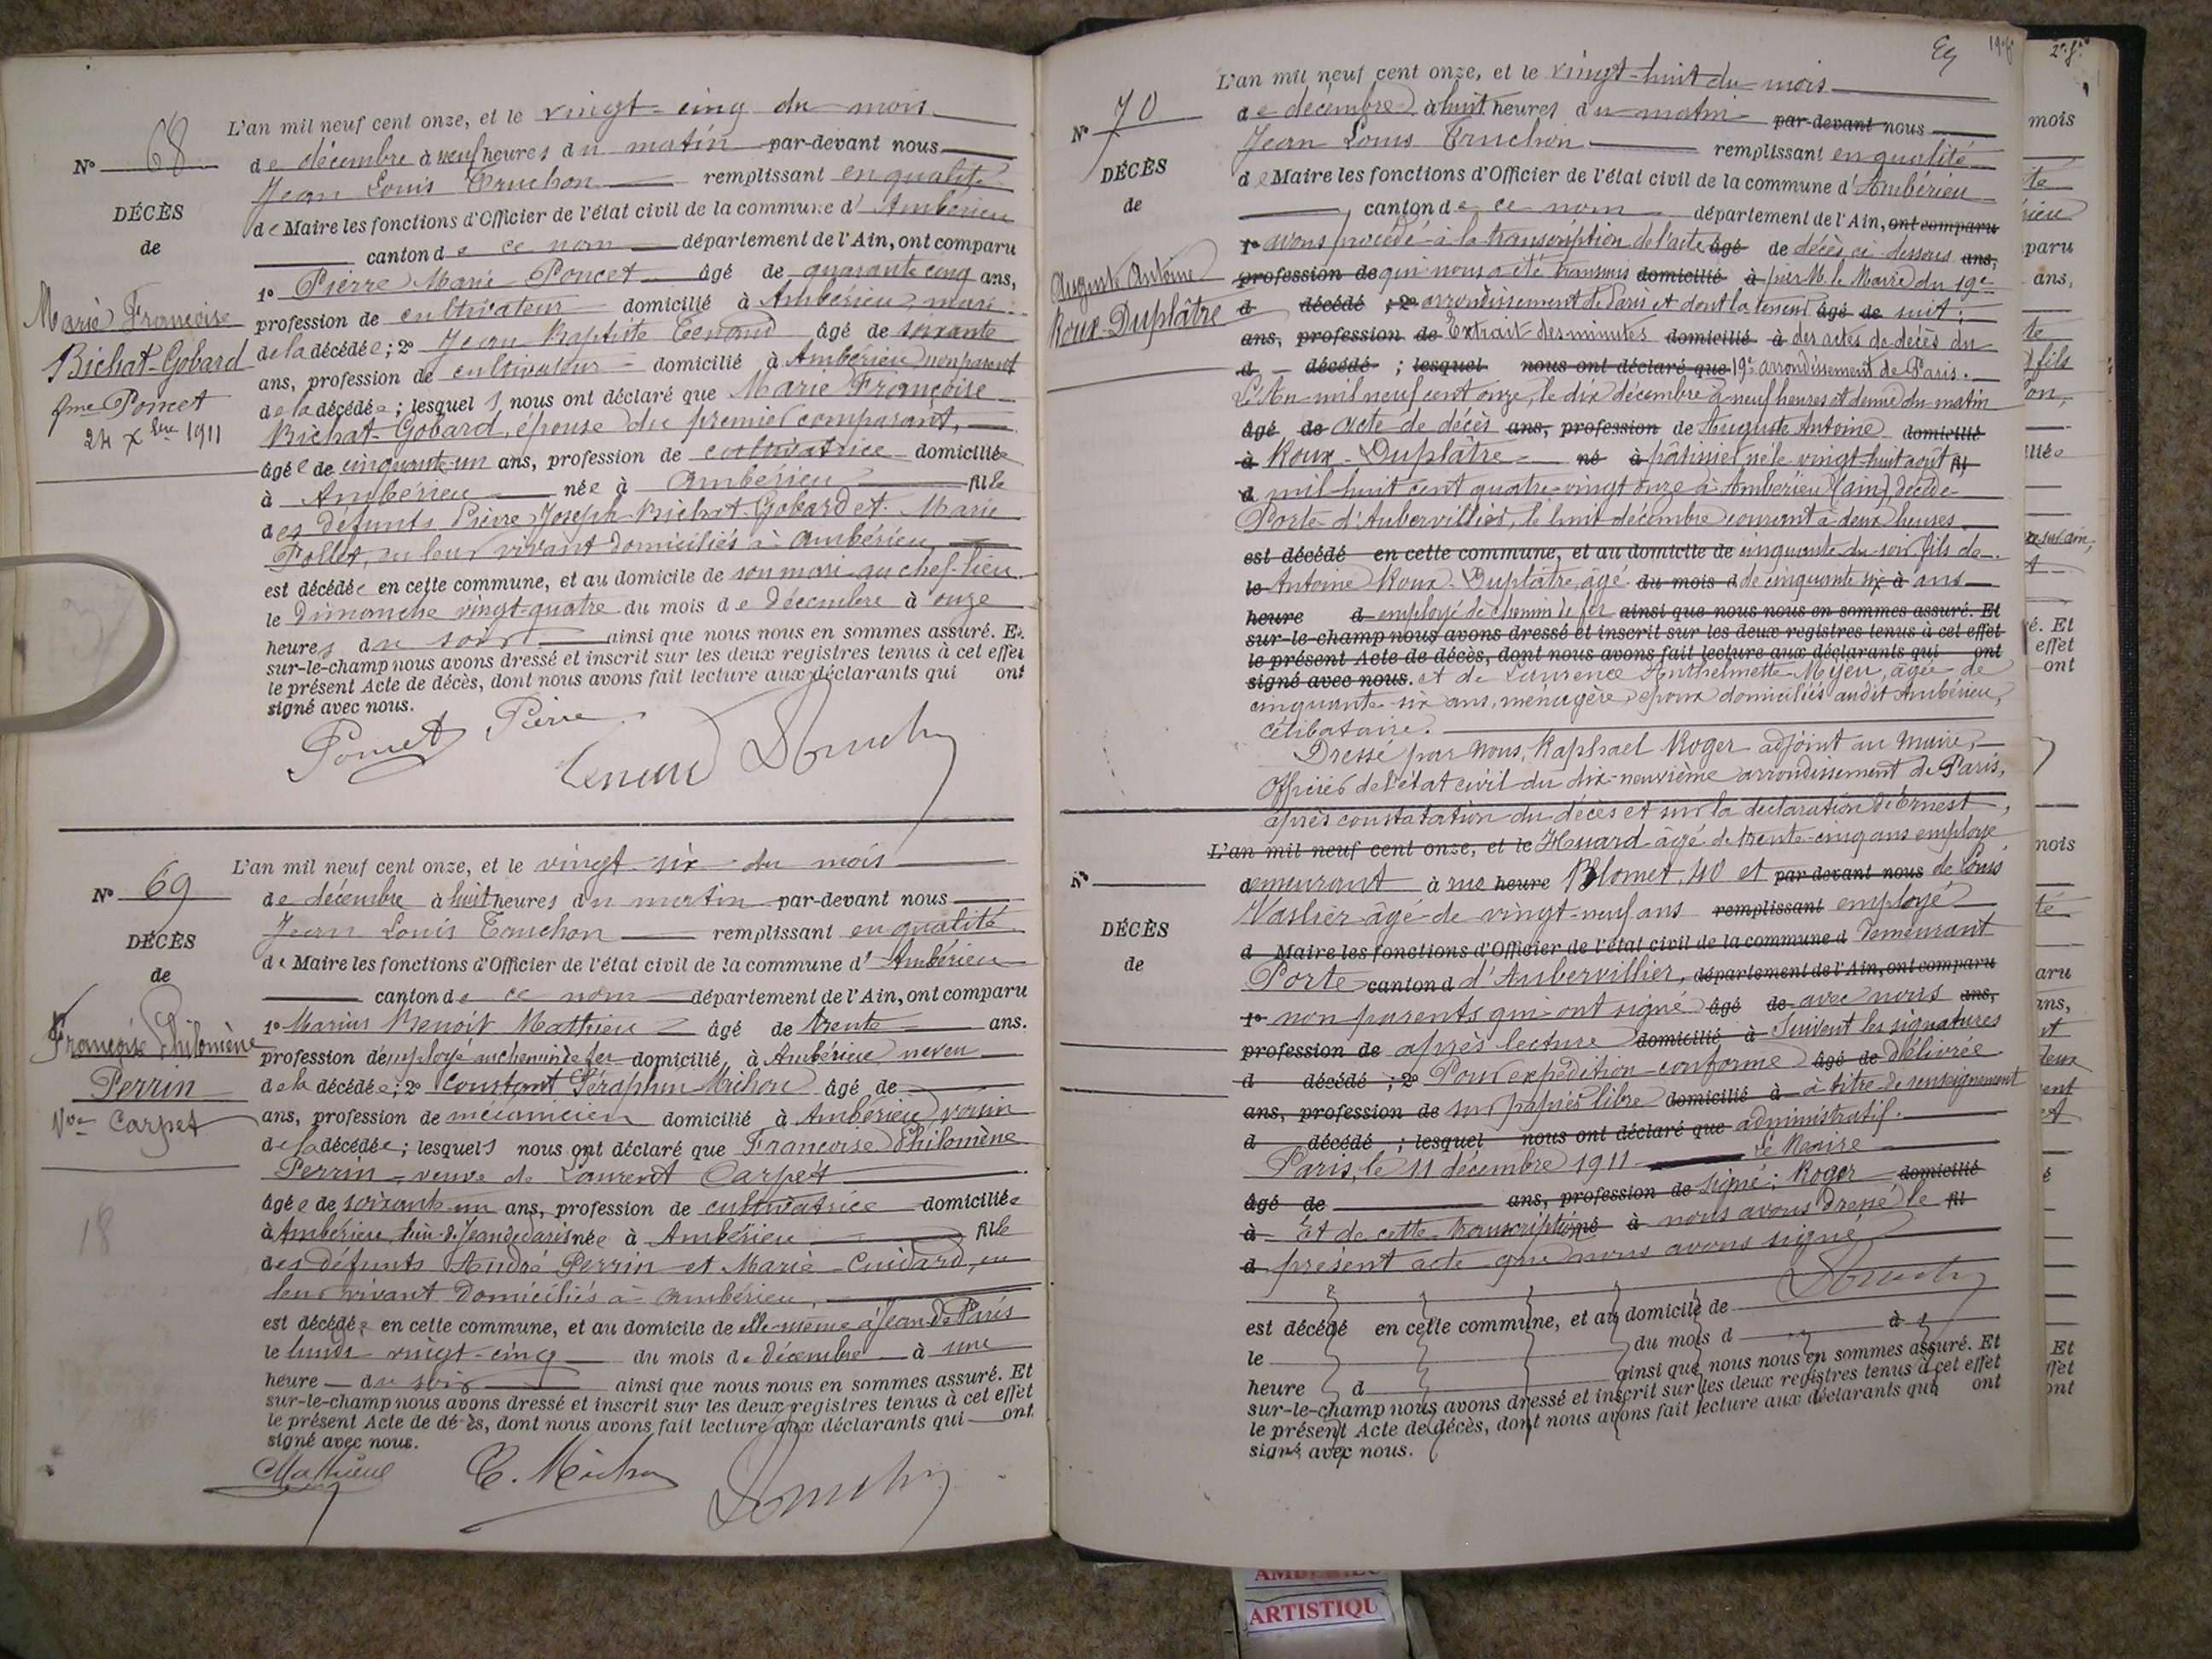 L'an mil neuf cent onze, et le vingt-cinq du mois
N° 68
de décembre à neuf heures du matin par-devant nous
Jean Louis Truchon remplissant en qualité
DÉCÈS
de Maire les fonctions d'Officier de l'état civil de la commune d'Ambérieu
de
canton de ce nom département de l'Ain, ont comparu
1° Pierre Marie Poncet âgé de quarante cinq ans,
Marie Françoise
Bichat-Gobard
fme Poncet
24 Xbre 1911
profession de cultivateur domicilié à Ambérieu, mari
de la décédée; 2° Jean Baptiste Tenand âgé de soixante
ans, profession de cultivateur domicilié à Ambérieu non parent
de la décédée; lesquels nous ont déclaré que Marie Françoise
Bichat-Gobard, épouse du premier comparant,
âgée de cinquante-un ans, profession de cultivatrice domiciliée
à Ambérieu née à Ambérieu fille
des défunts Pierre Joseph Bichat-Gobard et Marie
Follet, en leur vivant domiciliés à Ambérieu
est décédée en cette commune, et au domicile de son mari au chef-lieu
le Dimanche vingt-quatre du mois de Décembre à onze
heures du soir ainsi que nous nous en sommes assuré. Et
sur-le-champ nous avons dressé et inscrit sur les deux registres tenus à cet effet
le présent Acte de décès, dont nous avons fait lecture aux déclarants qui ont
signé avec nous.
Poncet Pierre
Tenand
L'an mil neuf cent onze, et le vingt-six du mois
N° 69
de décembre à huit heures du matin par-devant nous
Jean Louis Truchon remplissant en qualité
DÉCÈS
de Maire les fonctions d'Officier de l'état civil de la commune d'Ambérieu
de
canton de ce nom département de l'Ain, ont comparu
1° Marius Benoit Mathieu âgé de trente ans.
Françoise Philomène
Perrin
Vve Carpet
profession d'employé au chemin de fer domicilié à Ambérieu neveu
de la décédée; 2° Constant Séraphin Michon âgé de
ans, profession de mécanicien domicilié à Ambérieu voisin
de la décédée; lesquels nous ont déclaré que Françoise Philomène
Perrin - veuve de Laurent Carpet
âgée de soixante-un ans, profession de cultivatrice domiciliée
18
à Ambérieu, Jean de Paris née à Ambérieu fille
des défunts André Perrin et Marie Cuidard, en
leur vivant domiciliés à Ambérieu,
est décédée en cette commune, et au domicile de elle-même à Jean de Paris
le lundi vingt-cinq du mois de décembre à une
heure du soir ainsi que nous nous en sommes assuré. Et
sur-le-champ nous avons dressé et inscrit sur les deux registres tenus à cet effet
le présent Acte de décès, dont nous avons fait lecture aux déclarants qui ont
signé avec nous.
Mathieu C. Michon
L'an mil neuf cent onze, et le vingt-huit du mois
N° 70
de décembre à huit heures du matin par-devant nous
Jean Louis Truchon remplissant en qualité
DÉCÈS
de Maire les fonctions d'Officier de l'état civil de la commune d'Ambérieu
de
canton de ce nom département de l'Ain, ont comparu
1° avons procédé à la transcription de l'acte âgé de décès ci-dessous ans,
Auguste Antoine
Roux-Duplâtre
profession de qui nous a été transmis domicilié à par M. le Maire du 19e
d décédé ; 2° arrondissement de Paris et dont la teneur âgé de suit :
ans, profession de Extrait des minutes domicilié à des actes de décès du
d décédé ; lesquel nous ont déclaré que 19e arrondissement de Paris.
L'An mil neuf cent onze, le dix décembre à neuf heures et demie du matin
âgé de acte de décès ans, profession de Auguste Antoine domicilié
à Roux-Duplâtre né à pâtissier né le vingt-huit août fil
d mil huit cent quatre-vingt onze à Ambérieu (ain) décédé
Porte d'Aubervilliers, le huit décembre courant à deux heures
est décédé en cette commune, et au domicile de cinquante du soir fils de
le Antoine Roux-Duplâtre, âgé du mois d de cinquante six à ans
heure d employé de chemin de fer ainsi que nous nous en sommes assuré. Et
sur-le-champ nous avons dressé et inscrit sur les deux registres tenus à cet effet
le présent Acte de décès, dont nous avons fait lecture aux déclarants qui ont
signé avec nous. et de Laurence Anthelmette Mijeu, âgée de
cinquante-six ans, ménagère, époux domiciliés audit Ambérieu,
célibataire.
Dressé par Nous, Raphael Roger adjoint au maire,
officier de l'état civil du dix-neuvième arrondissement de Paris,
après constatation du décès et sur la déclaration d'Ernest
L'an mil neuf cent onze, et le Huard âgé de trente-cinq ans employé
N°
demeurant à rue heure Blomet, 40 et par devant nous de Louis
Vaslier âgé de vingt-neuf ans remplissant employé
DÉCÈS
d Maire les fonctions d'Officier de l'état civil de la commune d demeurant
de
Porte canton d d'Aubervillier, département de l'Ain, ont comparu
1° non parents qui ont signé âgé de avec nous ans,
profession de après lecture domicilié à Suivent les signatures
d décédé ; 2° Pour expédition conforme âgé de délivrée
ans, profession de sur papier libre domicilié à à titre de renseignement
d décédé ; lesquel nous ont déclaré que administratif.
Paris, le 11 décembre 1911 Le Maire
âgé de ans, profession de signé : Roger domicilié
à Et de cette transcription né à nous avons dressé le fil
d présent acte que nous avons signé
est décédé en cette commune, et au domicile de
le du mois d à
heure d ainsi que nous nous en sommes assuré. Et
sur-le-champ nous avons dressé et inscrit sur les deux registres tenus à cet effet
le présent Acte de décès, dont nous avons fait lecture aux déclarants qui ont
signé avec nous.
mois
paru
ans,
fils
effet
ont
ARTISTIQU